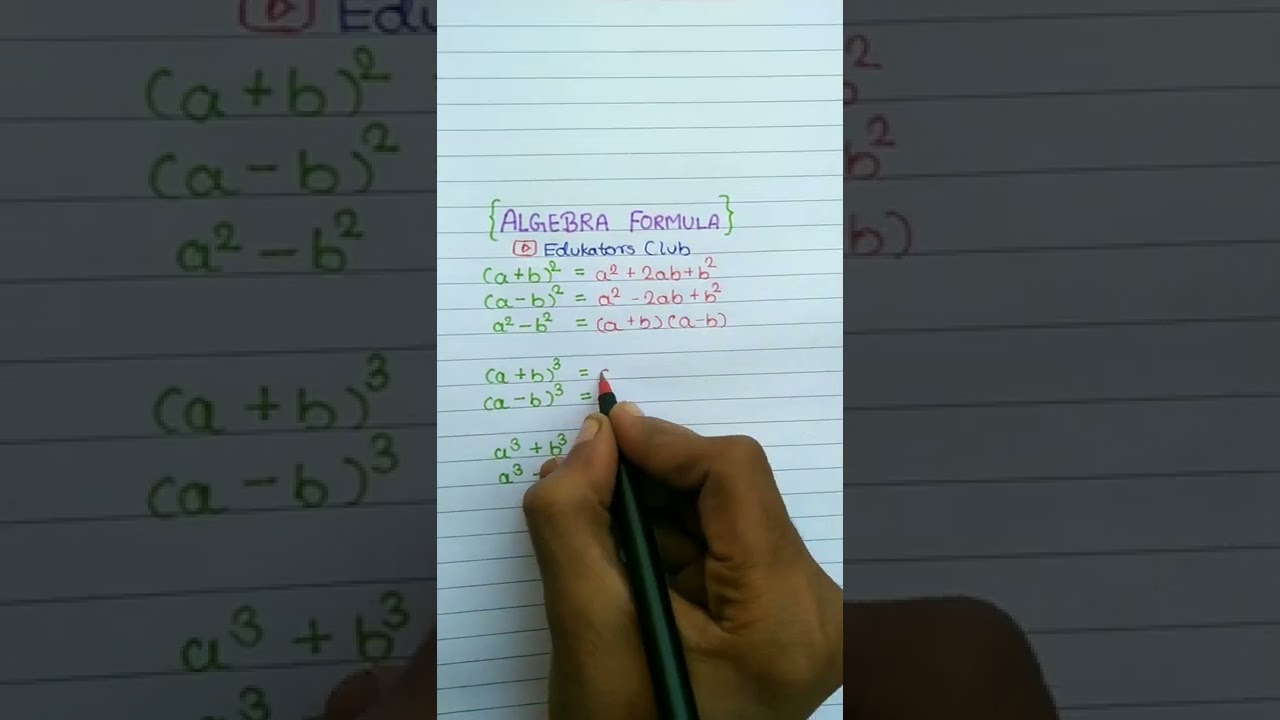 {ALGEBRA FORMULA}
Edukators Club
(a+b)² = a² + 2ab + b²
(a-b)² = a² - 2ab + b²
a² - b² = (a+b)(a-b)
(a+b)³ =
(a-b)³ =
a³ + b³
a³ -